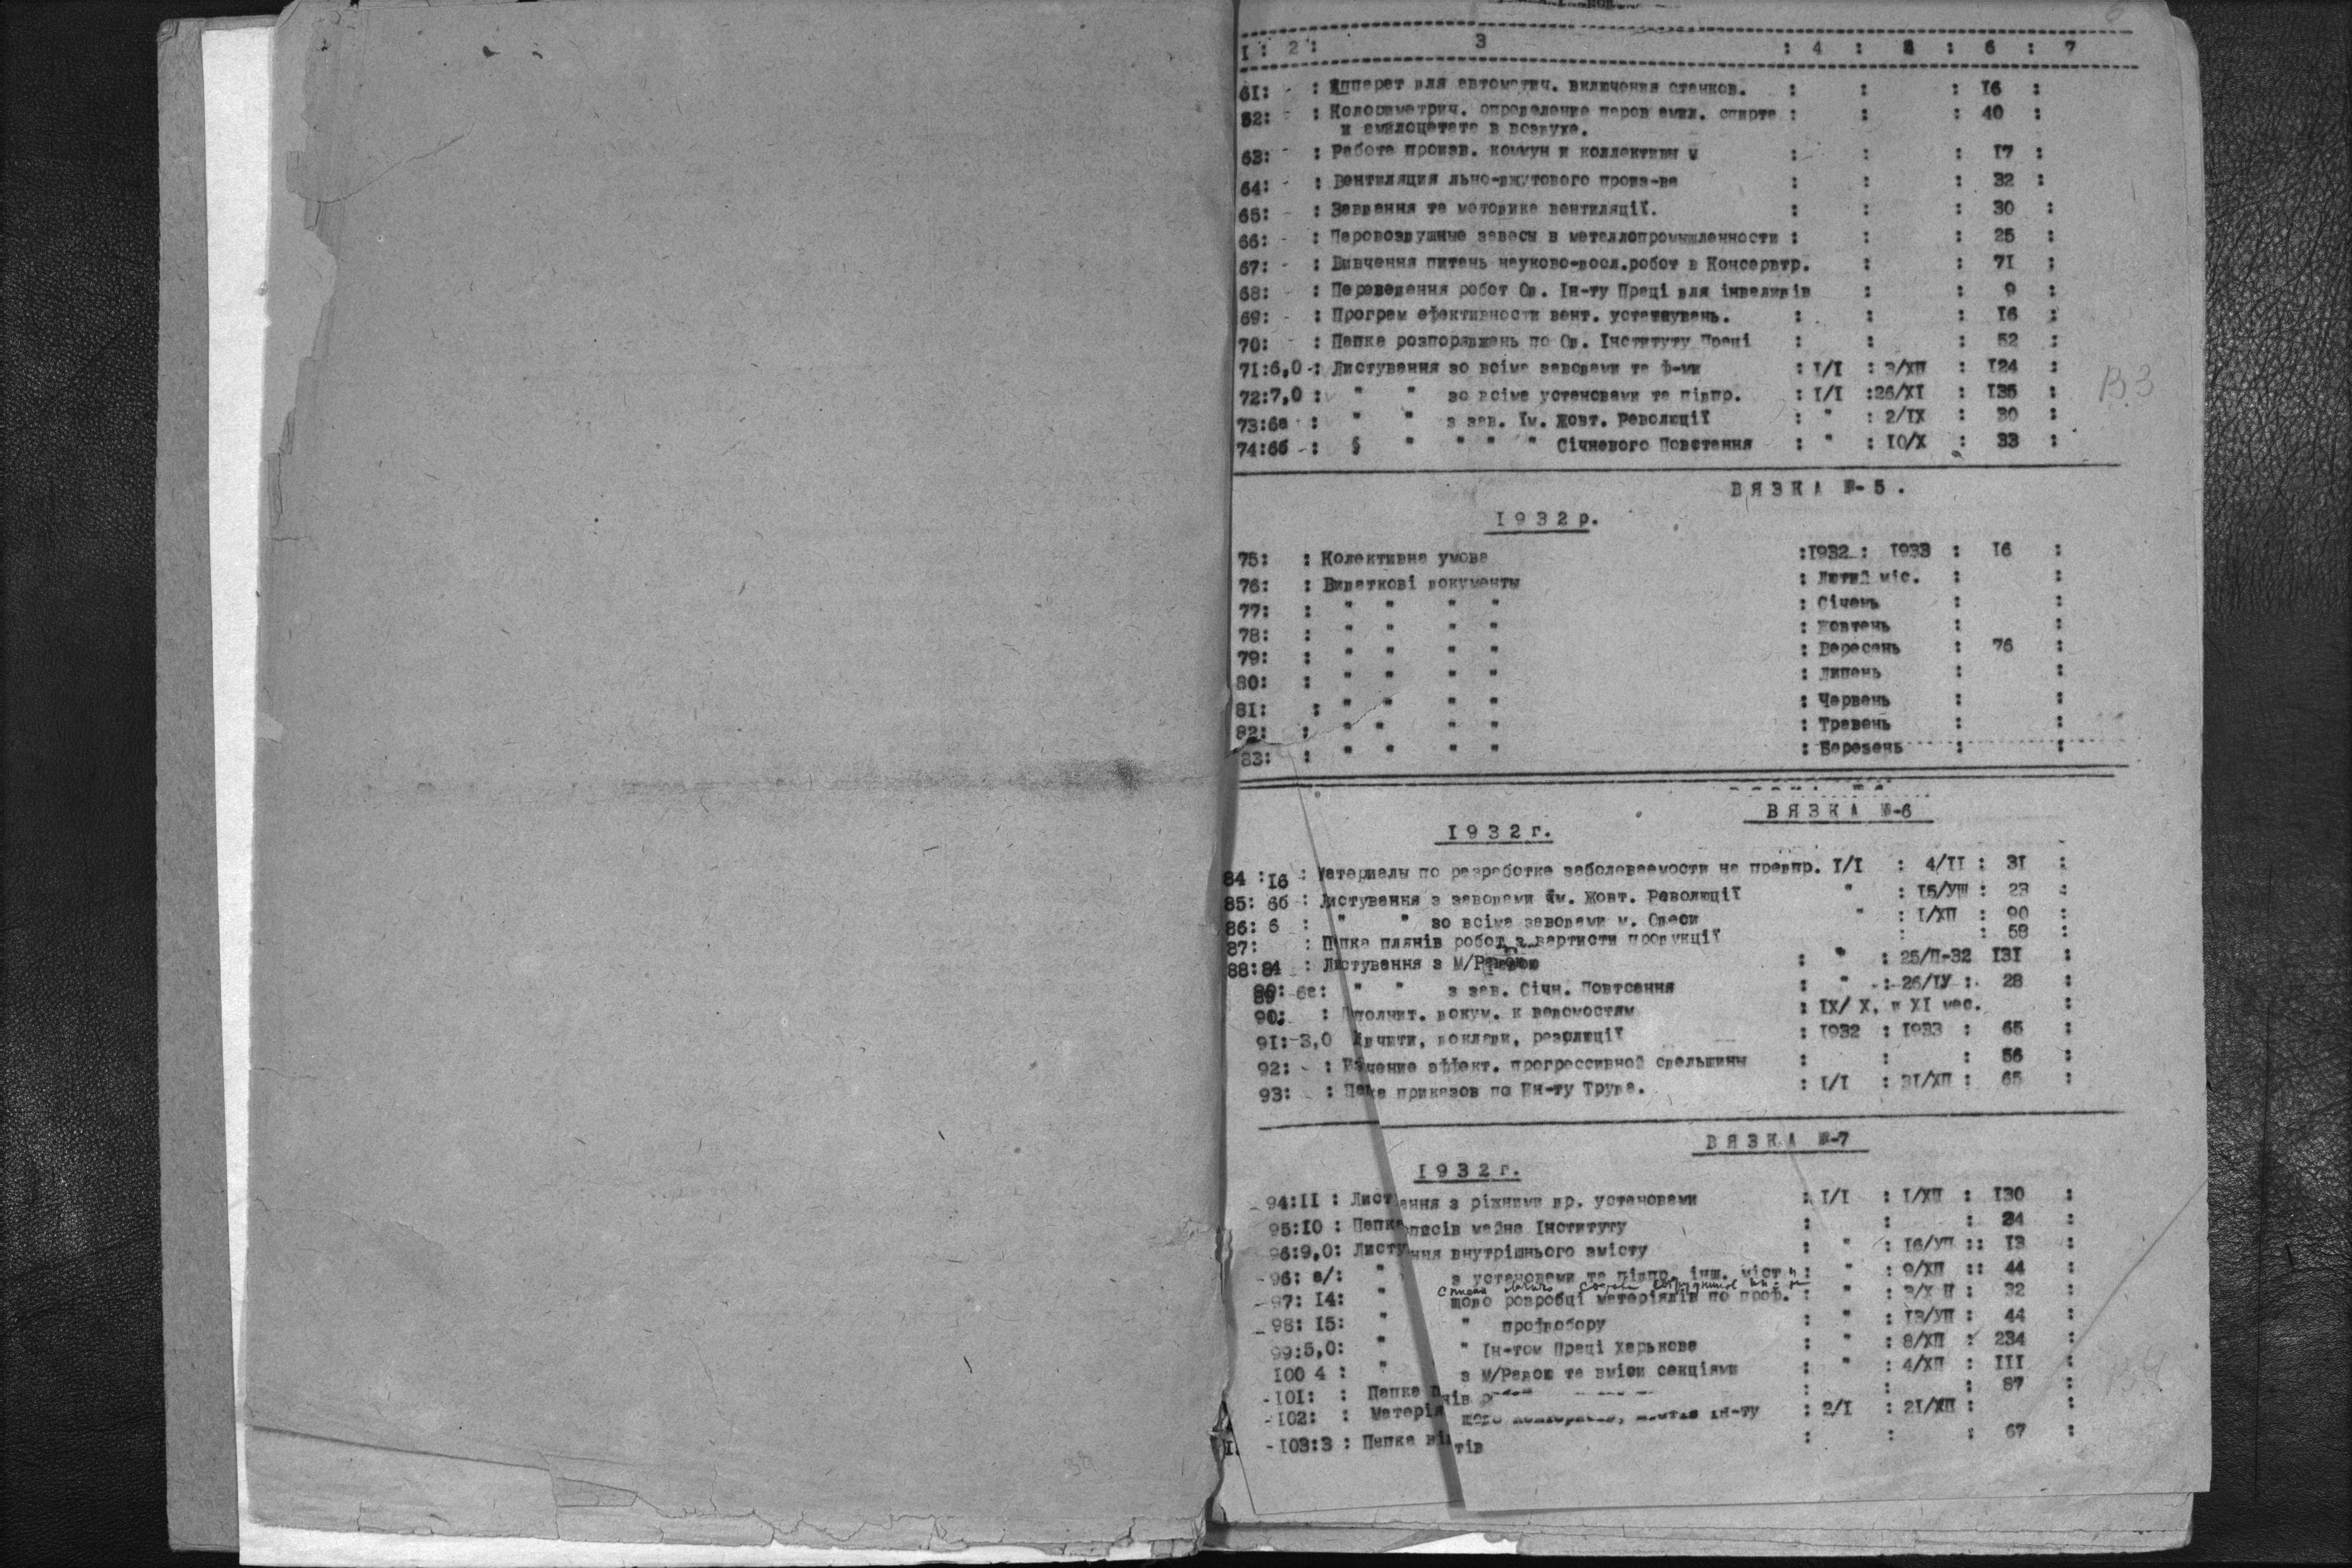 I : 2 : 3 : 4 : 5 : 6 : 7
61: - : Аппарат для автоматич. включения станков. : : : 16 :
62: - : Колориметрич. определение паров амил. спирта : : : 40 :
и амилоцетата в воздухе.
63: - : Работа произв. коммун и коллективы : : : 17 :
64: - : Вентиляция льно-джутового произ-ва : : : 32 :
65: - : Завдання та методика вентиляції. : : : 30 :
66: - : Паровоздушные завесы в металлопромышленности : : : 25 :
67: - : Вивчення питань науково-досл.робот в Консервтр. : : 71 :
68: - : Переведення робот Од. Ін-ту Праці для інвалидів : : 9 :
69: - : Програм ефективности вент. устаткувань. : : : 16 :
70: - : Папка розпоряджень по Од. Інституту Праці : : : 52 :
71:6,0-: Листування зо всіма заводами та ф-ми : I/I : 3/ХП : 124 :
72:7,0 : " " зо всіма установами та підпр. : I/I :26/XI : 135 :
73:6а : " " з зав. їм. Жовт. Революції : " : 2/IX : 30 :
74:6б -: § " " " " Січневого Повстання : " : 10/X : 33 :
В3
В Я З К А №-5.
1932р.
75: : Колективна умова :1932 : 1933 : 16 :
76: : Видаткові документы : Лютий міс. : :
77: : " " " " : Січень : :
78: : " " " " : Жовтень : :
79: : " " " " : Вересень : 76 :
80: : " " " " : Липень : :
81: : " " " " : Червень : :
82: : " " " " : Травень : :
83: : " " " " : Березень : :
В Я З К А №-6
1932г.
84 :16 : Материалы по разработке заболеваемости на предпр. I/I : 4/II : 31 :
85: 6б : Листування з заводами ім. Жовт. Революції " : 15/УШ : 23 :
86: 6 : " " зо всіма заводами м. Одеси " : I/ХП : 90 :
87: : Папка плянів робот з вартисти продукції : : 58 :
88:84 : Листування з М/Радою : " : 25/П-32 131 :
89: 6а: " " з зав. Січн. Повтсання : " -:-26/IУ : 28 :
90: : Дполнит. докум. к ведомостям : IX/ X, и XI мес. :
91:-3,0 Авчити, доклади, резолюції : 1932 : 1933 : 65 :
92: - : чение эффект. прогрессивной сдельщины : : : 56 :
93: : Папка приказов по Ин-ту Труда. : I/I : 31/ХП : 65 :
В Я З К А №-7
1932г.
-94:II : Лист ання з ріжними др. установами : I/I : I/ХП : 130 :
95:10 : Папка описів майна Інституту : : : 24 :
-96:9,0: Листу ння внутрішнього змісту : " : 16/УП :: 13 :
-96: а/: " з установами та підпр. інш. міст : " : 9/ХП :: 44 :
-97: 14: " щодо розробці матеріялів по проф. : " : 3/Х П : 32 :
-98: 15: " " профдобору : " : 13/УП : 44 :
99:5,0: " " Ін-том Праці Харькова : " : 8/ХП : 234 :
100 4 : " з М/Радою та вміои секціями : " : 4/ХП : III :
-101: : Папка п нів : : : 87 :
-102: : Матерія Ін-ту : 2/I : 21/ХП : :
-103:3 : Папка ві тів : : : 67 :